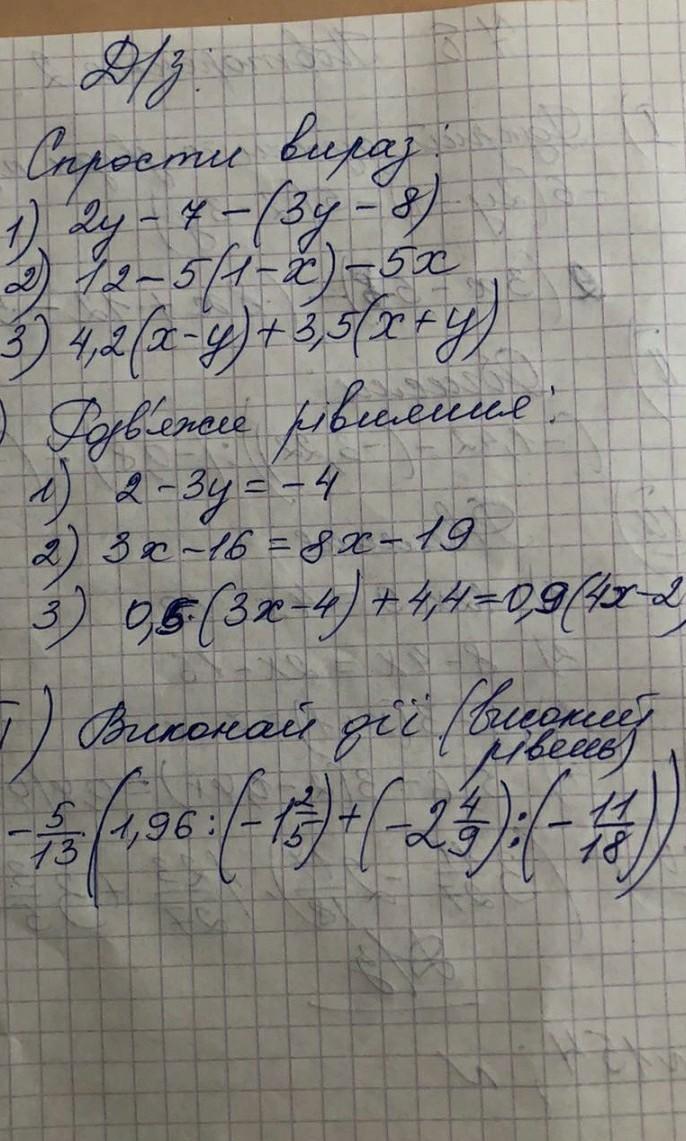 Д/з.
Спрости вираз:
1) 2y - 7 - (3y - 8)
2) 12 - 5(1 - x) - 5x
3) 4,2(x - y) + 3,5(x + y)
) Розв'яжи рівняння:
1) 2 - 3y = -4
2) 3x - 16 = 8x - 19
3) 0,5·(3x - 4) + 4,4 = 0,9(4x - 2)
) Виконай дії (високий
рівень)
- 5/13 · (1,96 : (-1 2/5) + (-2 4/9) : (- 11/18))